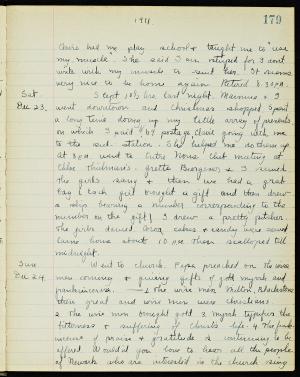 1911 179
Claire had me play school & taught me to "use
my muscle". She said I am stupid for I don't
write with my muscles to suit her. It seems
very nice to be home again. Retired 8:30 P.M.
Sat. Mamma & I
Dec 23, went downtown and Christmas shopped. Spent
a long time doing up my little array of presents
on which I paid postage. Claire going with me
to the sub-station. She helped me do them up
At 8 P.M. went to club meeting at
Chloe I served
the girls and then we had a great
bag & each girl bought a gift and then drew
a slip bearing a number corresponding to the
number on the gift. I drew a pretty pitcher.
The girls served cocoa, cakes & candy
Came home about 10 P.M. Then till
midnight.
Sun. Went to church. Papa preached on the wise
Dec 24. men coming & giving gifts of gold myrrh and
frankincense. 1 The wise men
then great and wise men were Christians.
2 The wise men brought gold 3 Myrrh typifies the
bitterness & suffering of Christ's life. 4 The frank-
incense of praise & gratitude is continuing to be
offered. Would you love to hear all the people
of Newark who are interested in the church sing